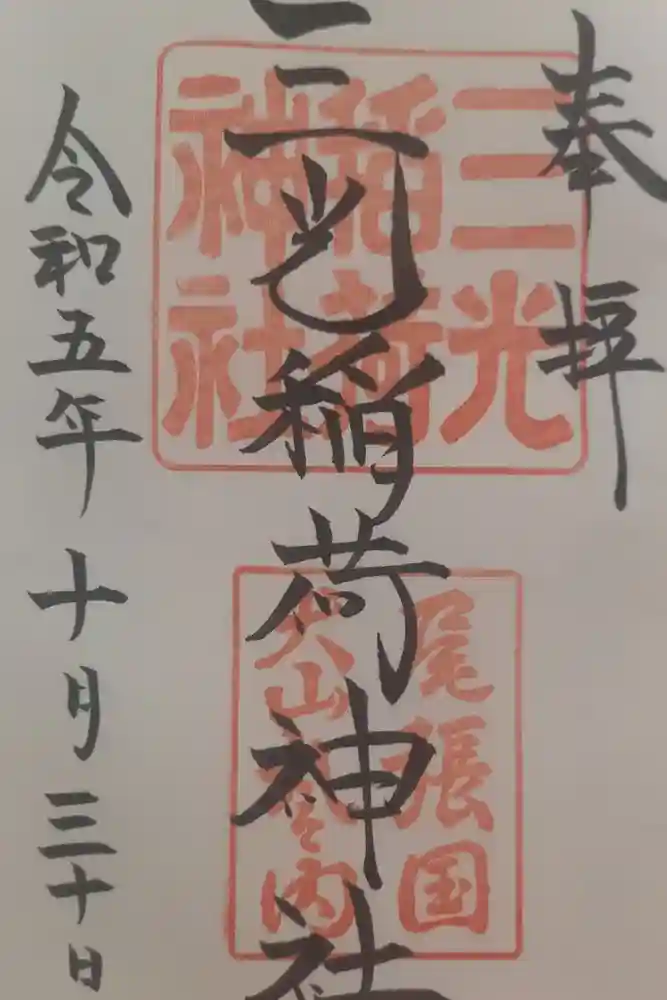 奉拝
三光稲荷神社
令和五年十月三十日
三光
稲荷
神社
尾張国
犬山
内